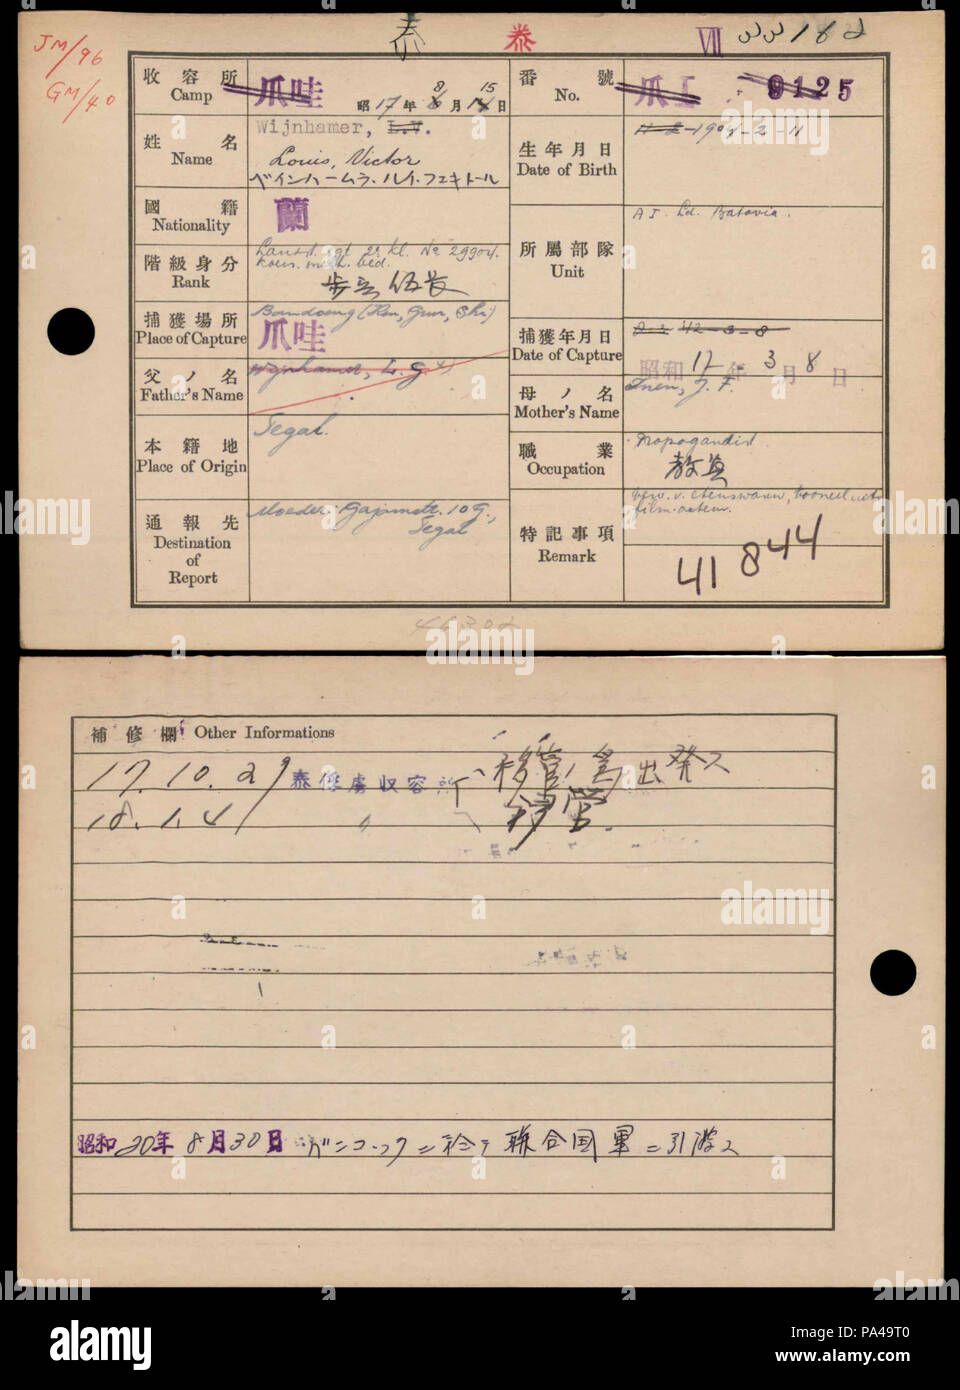 泰 泰 VII 33182
JM/96
GM/40
收容所 Camp 爪哇 昭17年8月15日
番號 No. 爪I 9125
姓名 Name Wijnhamer, L.V.
Louis, Victor
ベインハームラ・ルイ・フェキトール
生年月日 Date of Birth 1904-2-11
國籍 Nationality 蘭
所屬部隊 Unit AI. Ld. Batavia.
階級身分 Rank Lanst. sgt 2e kl. No
捕獲場所 Place of Capture Bandoeng
爪哇
捕獲年月日 Date of Capture 42-3-8
昭和17年3月8日
父ノ名 Father's Name Wijnhamer, L. G.
母ノ名 Mother's Name J. F.
本籍地 Place of Origin Tegal.
職業 Occupation Propagandist.
教員
通報先 Destination of Report Moeder: 10 G.,
Tegal
特記事項 Remark
41844
46302
補修欄 Other Informations
17.10.29 泰俘虜収容所ヘ移管ノ為出発ス
18.1.4 〃
昭和20年8月30日 バンコックニ於テ聯合国軍ニ引渡ス
alamy
alamy
Image ID: PA49T0
www.alamy.com